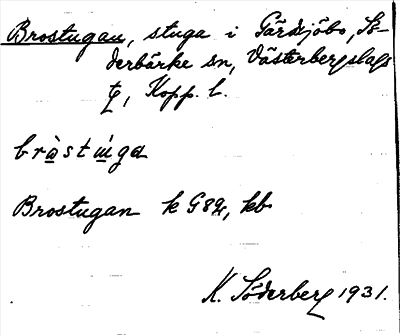 Brostugan, stuga i Gärdsjöbo, Sö-
derbärke sn, Västerbergslags
tg, Kopp. l.
bràstúga
Brostugan k G82, kb
K. Söderberg 1931.